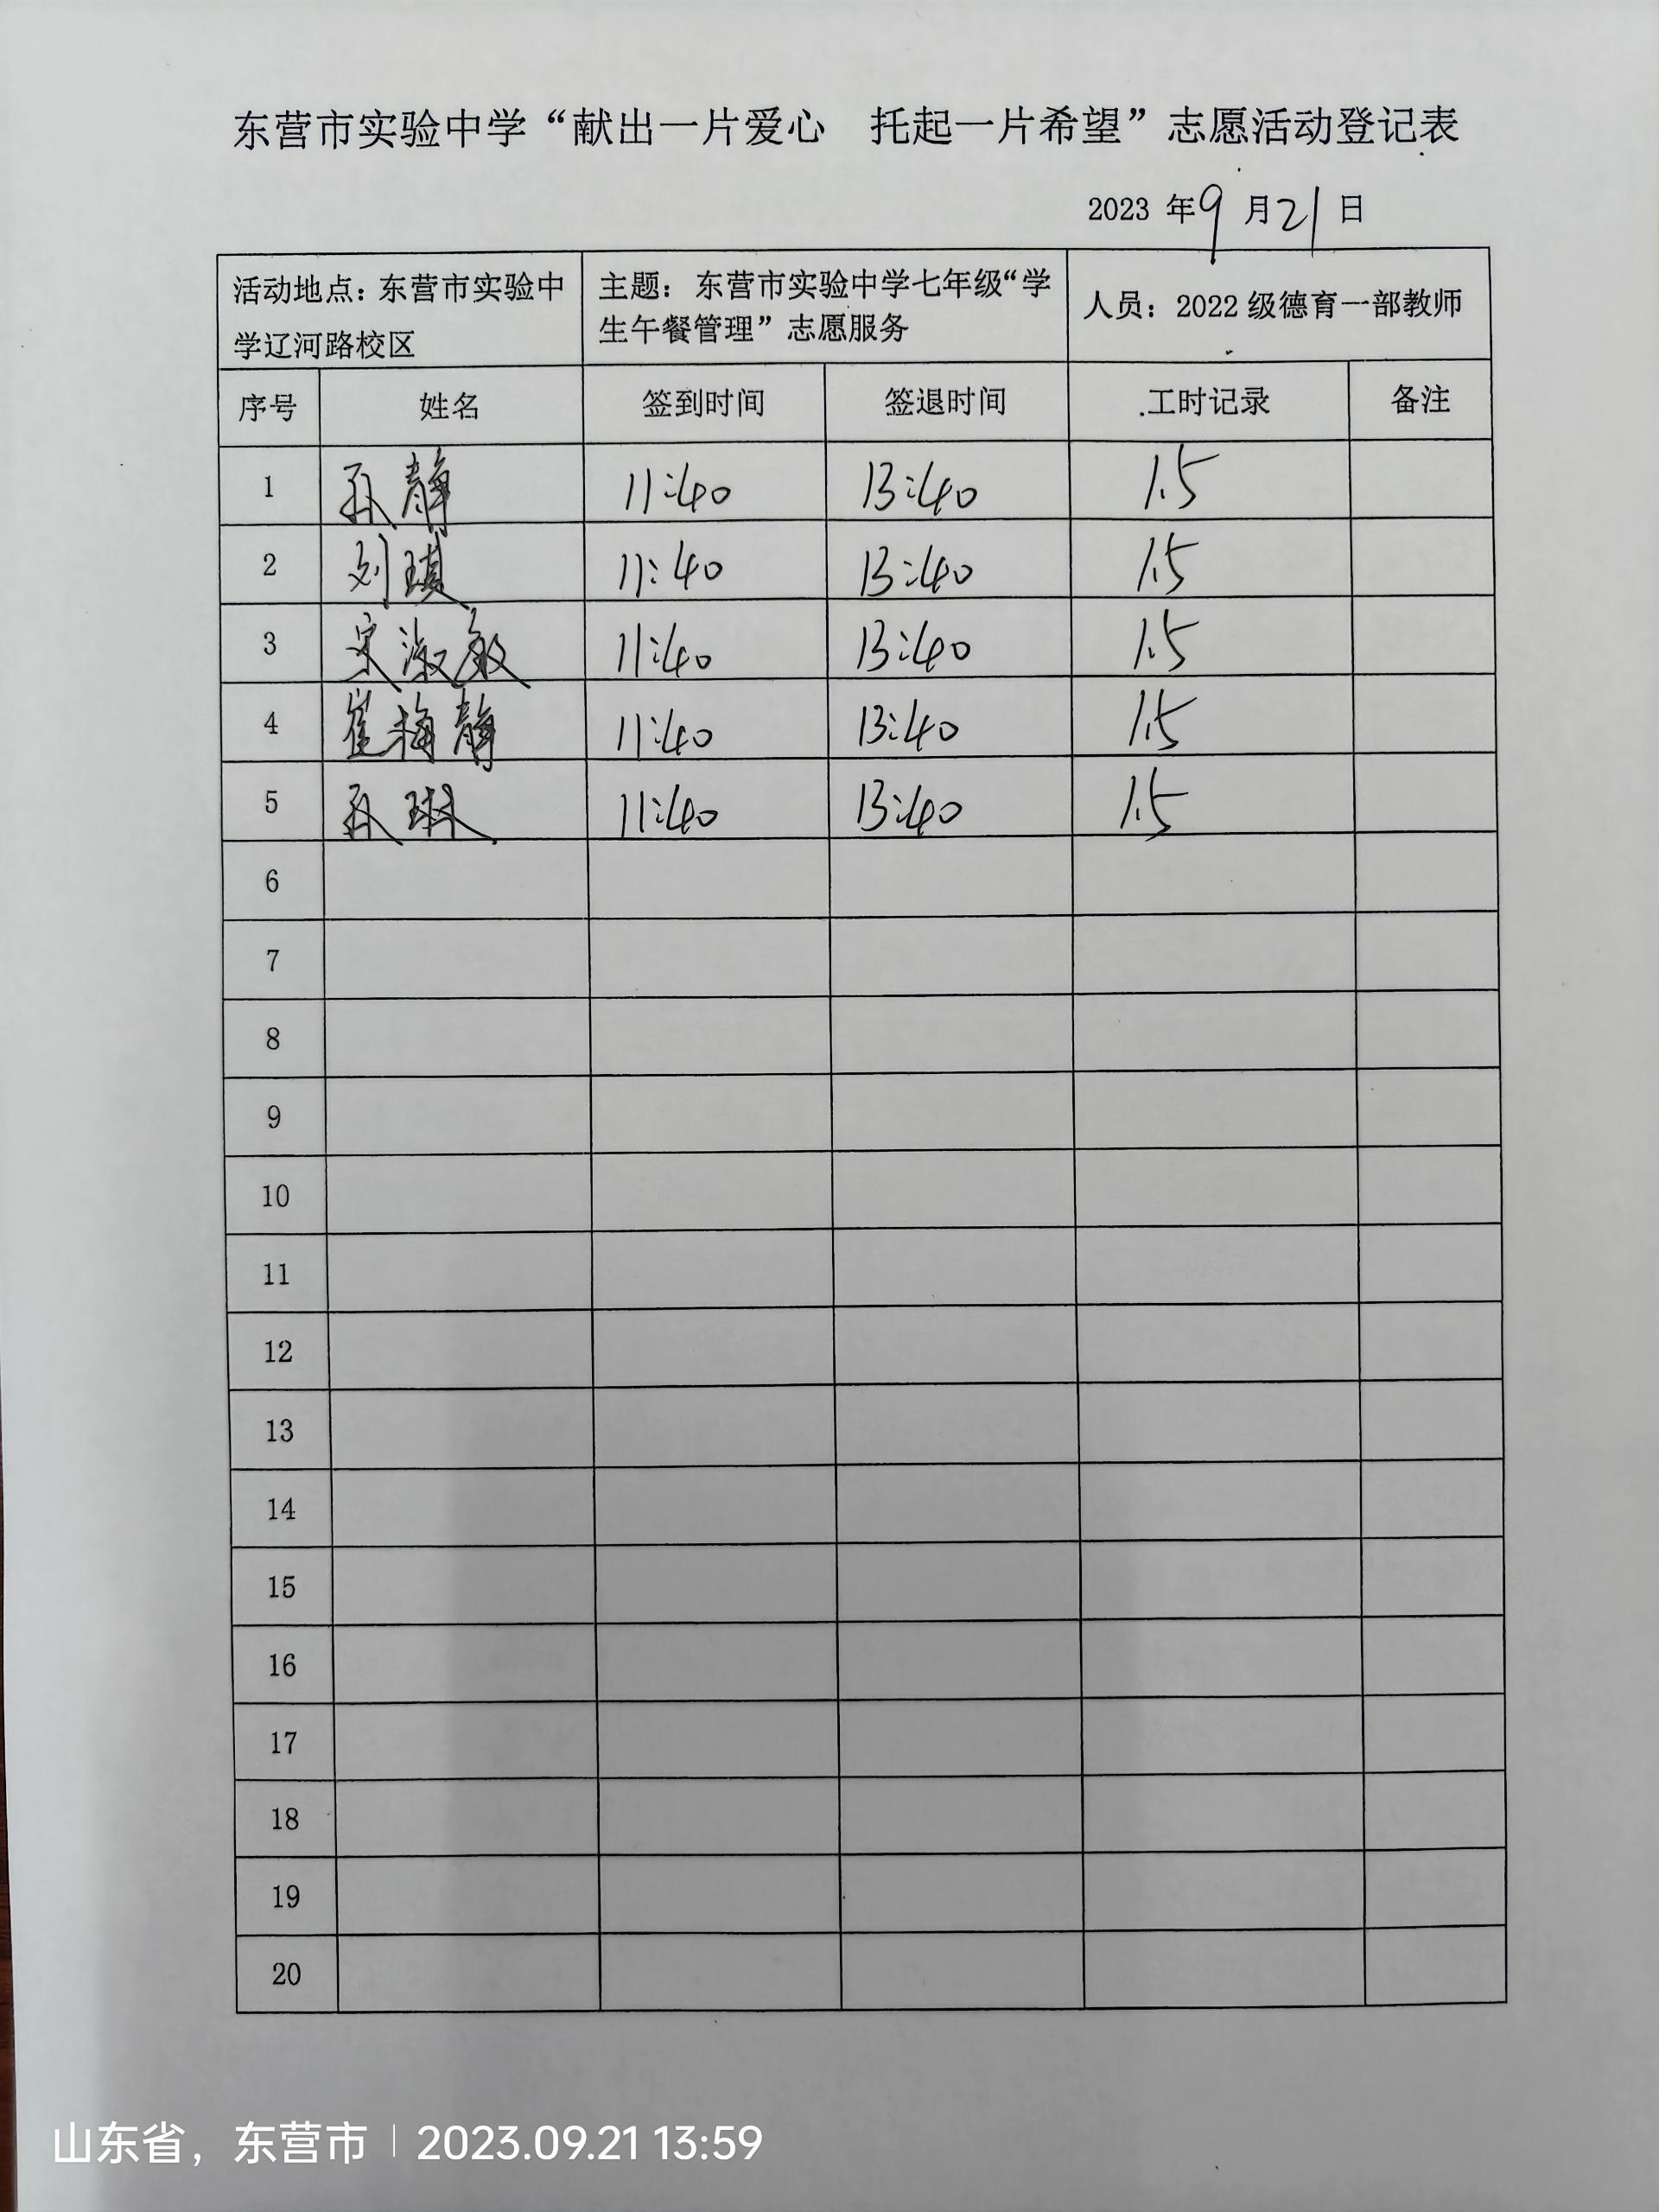 东营市实验中学“献出一片爱心 托起一片希望”志愿活动登记表
2023 年 9 月 21 日
活动地点：东营市实验中
学辽河路校区
主题：东营市实验中学七年级“学
生午餐管理”志愿服务
人员：2022 级德育一部教师
序号 姓名 签到时间 签退时间 工时记录 备注
1 孙静 11:40 13:40 1.5
2 刘琪 11:40 13:40 1.5
3 宋淑敏 11:40 13:40 1.5
4 崔梅静 11:40 13:40 1.5
5 孙琳 11:40 13:40 1.5
6
7
8
9
10
11
12
13
14
15
16
17
18
19
20
山东省，东营市 | 2023.09.21 13:59